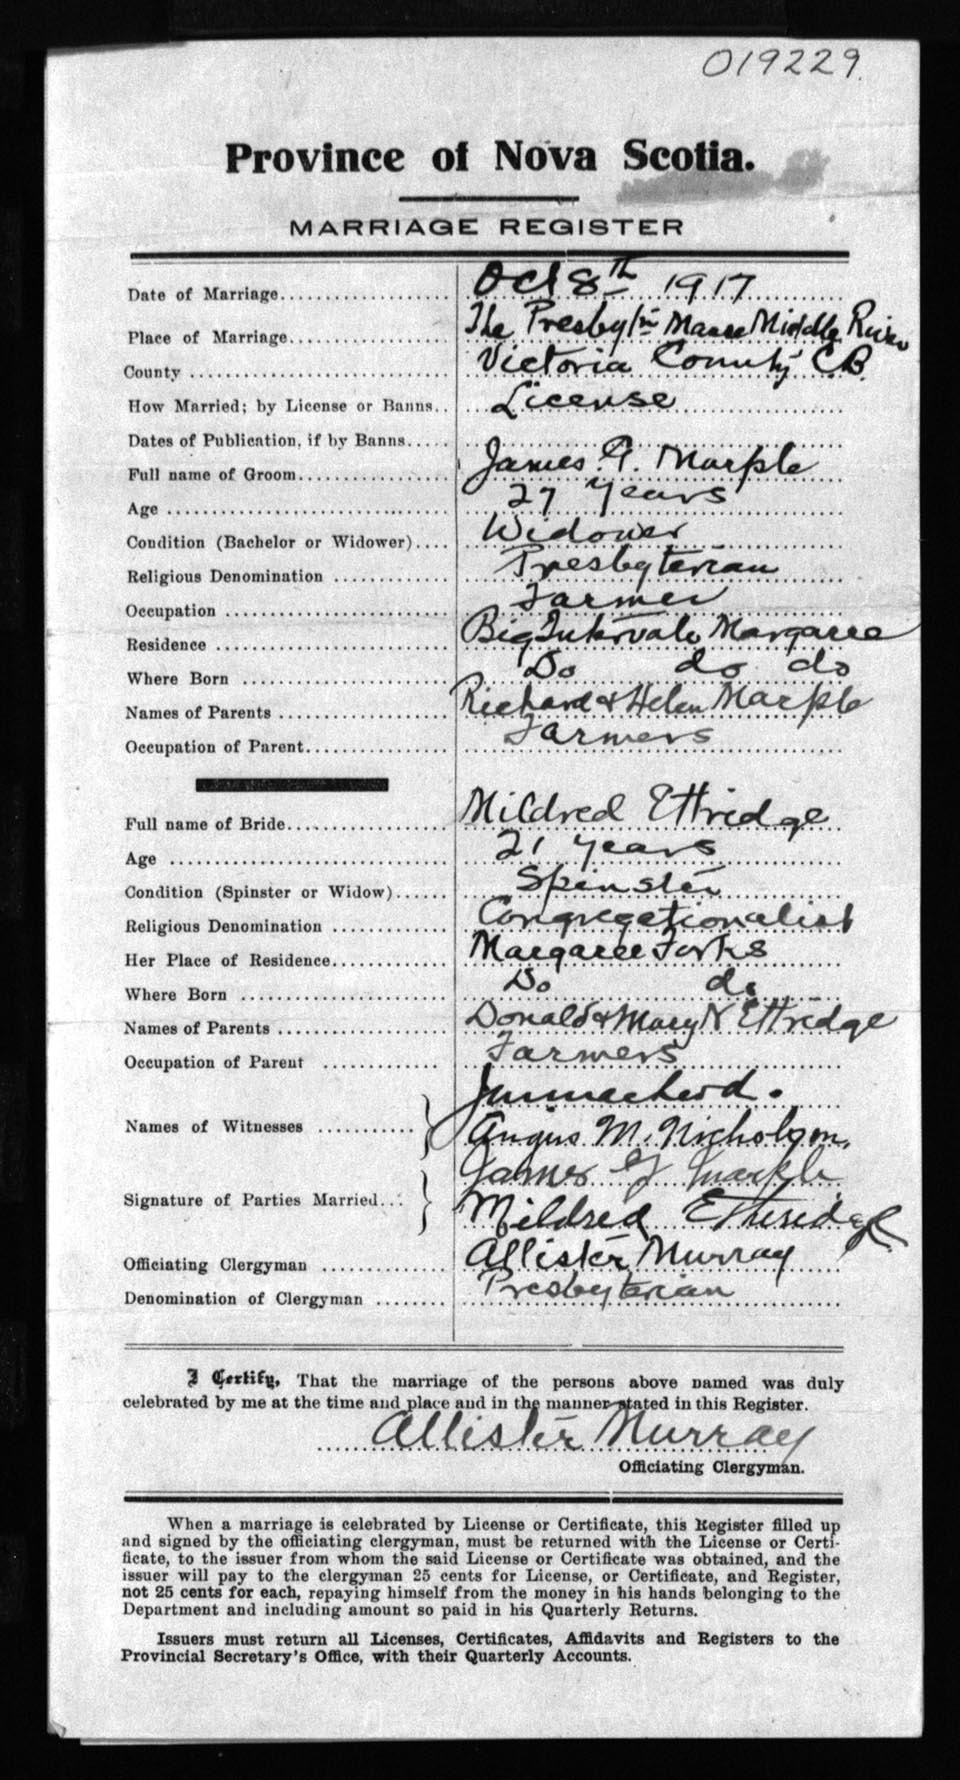 019229
Province of Nova Scotia.
MARRIAGE REGISTER
Date of Marriage Oct 8th 1917
Place of Marriage The Presbytn Manse Middle River
County Victoria County C.B.
How Married; by License or Banns License
Dates of Publication, if by Banns
Full name of Groom James G. Marple
Age 27 years
Condition (Bachelor or Widower) Widower
Religious Denomination Presbyterian
Occupation Farmer
Residence Big Intervale Margaree
Where Born Do do do
Names of Parents Richard & Helen Marple
Occupation of Parent Farmers
Full name of Bride Mildred Ettridge
Age 21 years
Condition (Spinster or Widow) Spinster
Religious Denomination Congregationalist
Her Place of Residence Margaree Forks
Where Born Do do
Names of Parents Donald & Mary N Ettridge
Occupation of Parent Farmers
Names of Witnesses
Angus M. Nicholson,
Signature of Parties Married James G Marple
Mildred Etheridge
Officiating Clergyman Allister Murray
Denomination of Clergyman Presbyterian
I Certify, That the marriage of the persons above named was duly
celebrated by me at the time and place and in the manner stated in this Register.
Allister Murray
Officiating Clergyman.
When a marriage is celebrated by License or Certificate, this Register filled up
and signed by the officiating clergyman, must be returned with the License or Certi-
ficate, to the issuer from whom the said License or Certificate was obtained, and the
issuer will pay to the clergyman 25 cents for License, or Certificate, and Register,
not 25 cents for each, repaying himself from the money in his hands belonging to the
Department and including amount so paid in his Quarterly Returns.
Issuers must return all Licenses, Certificates, Affidavits and Registers to the
Provincial Secretary's Office, with their Quarterly Accounts.